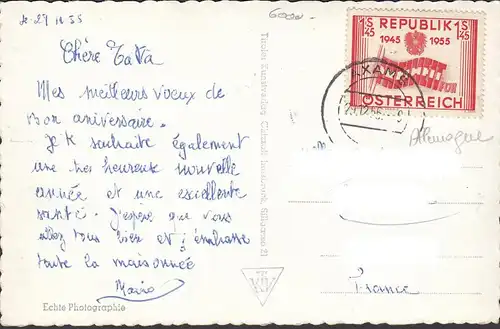 27 12 55
6000.-
Chère Tata
Mes meilleurs vœux de
Bon aniversaire.
Je te souhaite également
une tres heureuse nouvelle
année et une excellente
santé. J'espère que vous
allez tous bien et j'embrasse
toute la maisonnée
Mario
Echte Photographie
Tiroler Kunstverlag Chizzali Innsbruck,
1S 45 REPUBLIK 1S 45
1945 1955
ÖSTERREICH
AXAMS
Allemagne
France